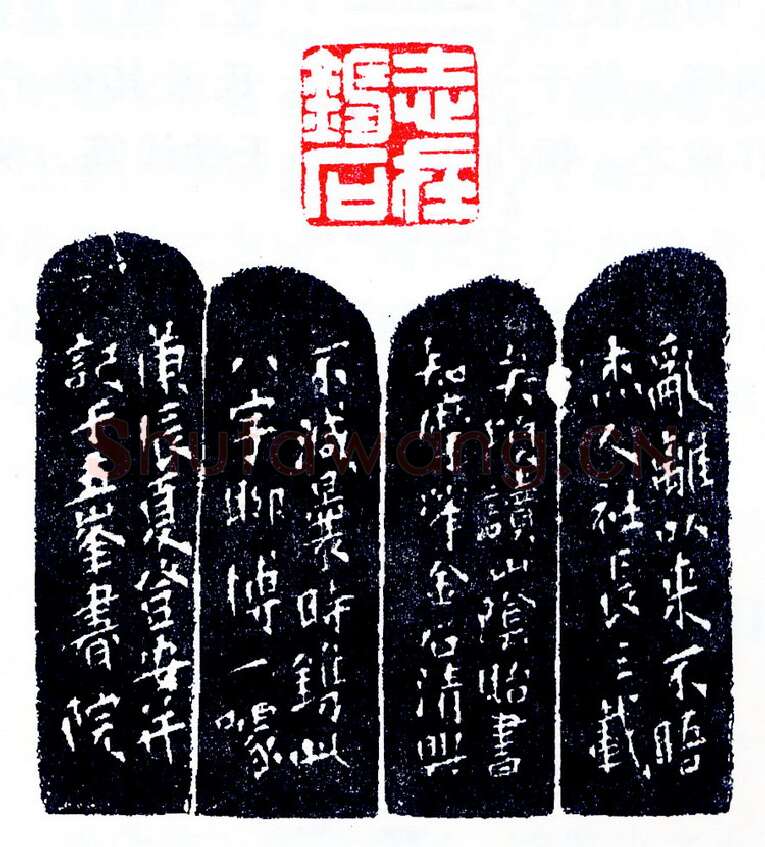 志在
鐫石
亂離以来不晤
杰人社長三載
矣頃讀山陰貽書
知金石清興
不減曩時鐫此
八字聊博一噱
庚辰夏安并
記于五峯書院
Shufawang.CN